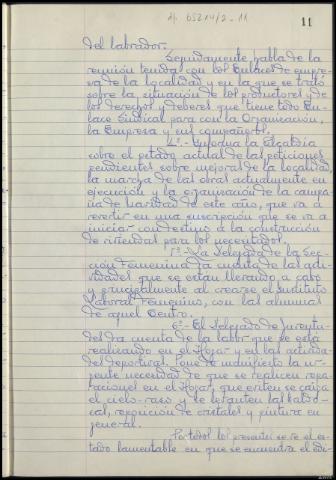 11
del labrador.
Seguidamente habla de la
reunión tenida con los Enlaces de empre-
sa de la localidad y en la que se trató
sobre la situación de los productores y de
los derechos y deberes que tiene todo En-
lace Sindical para con la Organización,
la Empresa y sus compañeros.
4º.- Informa la Alcaldía
sobre el estado actual de las peticiones
pendientes sobre mejoras de la localidad,
la marcha de las obras actualmente en
ejecución y la organización de la campa-
ña de Navidad de este año, que va a
revertir en una suscripción que se va a
iniciar con destino a la construcción
de viviendas para los necesitados.
5º.- La Delegada de la Sec-
ción Femenina da cuenta de las acti-
vidades que se están llevando a cabo
y principalmente al crearse el Instituto
Laboral Femenino, con las alumnas
de aquel Centro.
6º.- El Delegado de Juventu-
des da cuenta de la labor que se está
realizando en el Hogar y en las activida-
des deportivas. Pone de manifiesto la ur-
gente necesidad de que se realicen repa-
raciones en el Hogar, que eviten se caiga
el cielo-raso y se levanten las baldo-
sas, reposición de cristales y pintura en
general.
Por todos los presentes se ve el es-
tado lamentable en que se encuentra el edi-